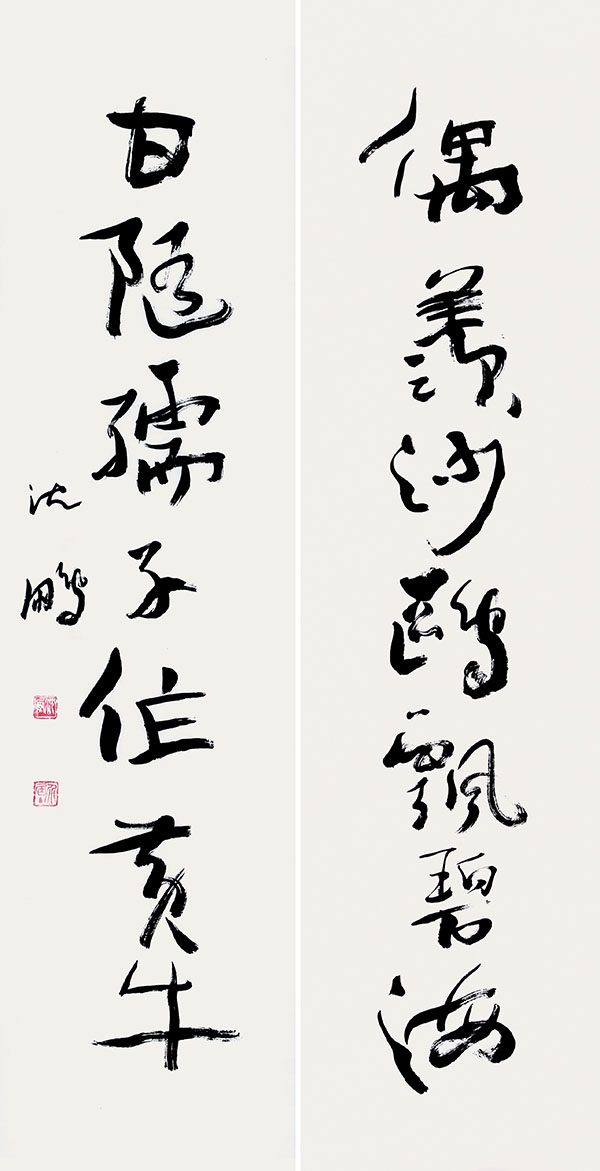 偶羡沙鸥飘碧海
甘随孺子作黄牛
沈鹏